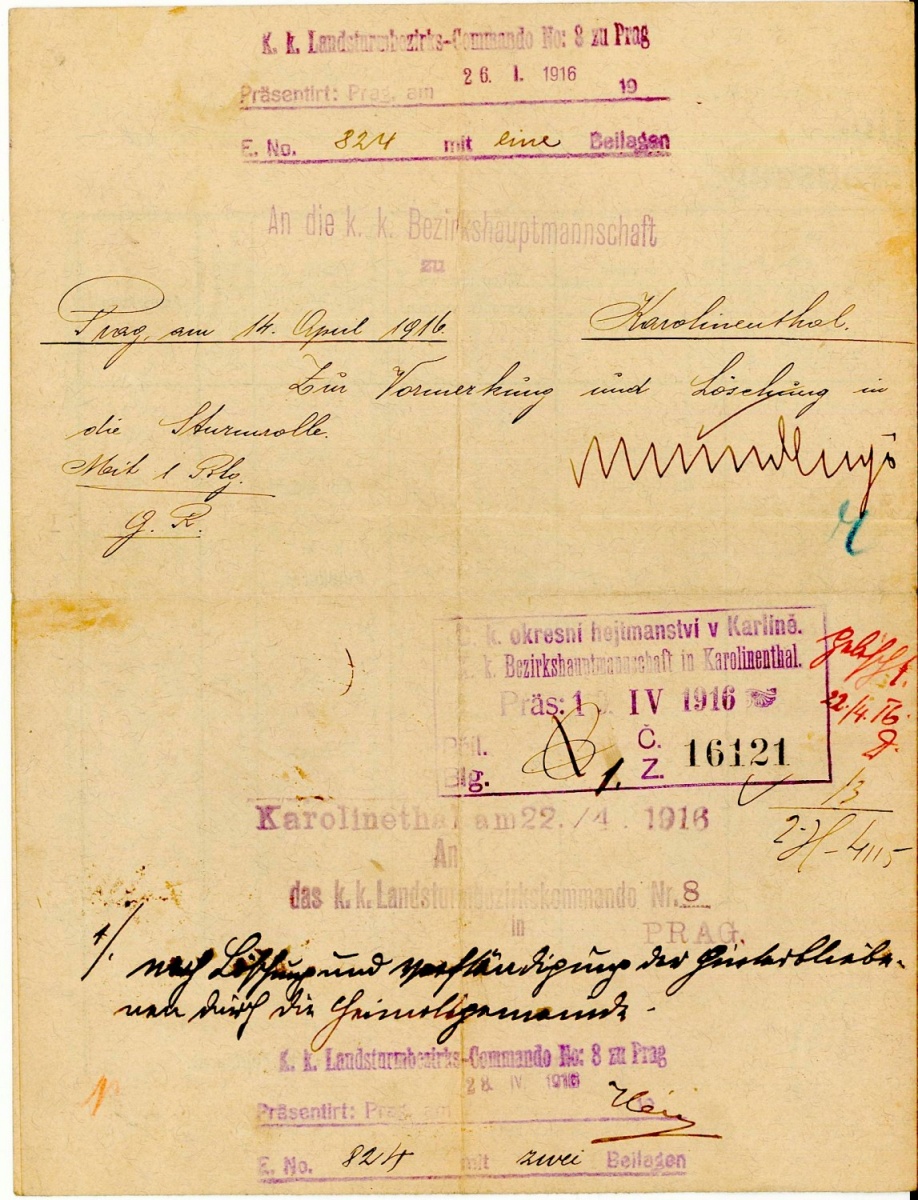 K. k. Landsturmbezirks-Commando No: 8 zu Prag
26. I. 1916
Präsentirt: Prag, am 19
E. No. 824 mit eine Beilagen
An die k. k. Bezirkshauptmannschaft
zu
Prag, am 14. April 1916. Karolinenthal.
Zur Vormerkung und Löschung in
die Sturmrolle.
Mit 1 Blg.
G. R.
C. k. okresní hejtmanství v Karlíně.
K. k. Bezirkshauptmannschaft in Karolinenthal.
Präs: IV 1916
Příl. Č.
Blg. 1. Z. 16121
Gelöscht.
22./4. 16.
D.
13
Karolinethal am 22./4. 1916
An
das k. k. Landsturmbezirkskommando Nr. 8
in PRAG.
1/. nach Löschung und Verständigung der Hinterbliebe-
nen durch die Heimatsgemeinde.
K. k. Landsturmbezirks-Commando No: 8 zu Prag
28. IV. 1916
Präsentirt: Prag, am 19
E. No. 824 mit zwei Beilagen